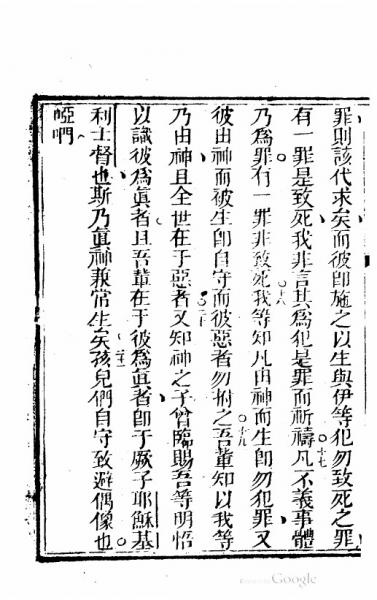 罪則該代求矣而彼卽施之以生與伊等犯勿致死之罪
○十七
有一罪是致死我非言其爲犯是罪而祈禱凡不義事體
○十八
乃爲罪有一罪非致死我等知凡由神而生卽勿犯罪又
○十九
彼由神而被生卽自守而彼惡者勿拊之吾輩知以我等
○二十
乃由神且全世在于惡者又知神之子曾臨賜吾等明悟
以識彼爲眞者且吾輩在于彼爲眞者卽于厥子耶穌基
○二十一
利士督也斯乃眞神兼常生矣孩兒們自守致避偶像也
啞㗒
Google